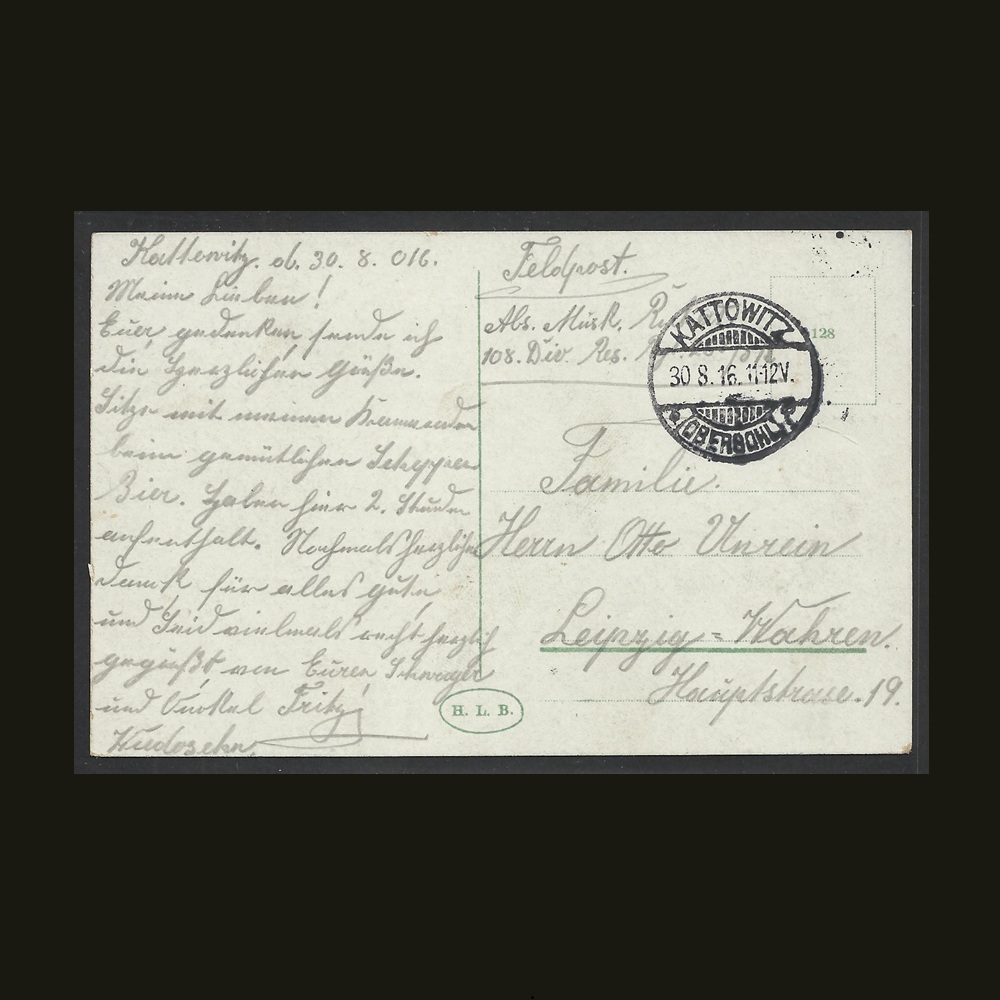 Kattowitz. d. 30. 8. 016.
Meine Lieben!
Eurer gedenken, sende ich
die Herzlichen Grüße.
Sitze mit meinen Kameraden
beim gemütlichen Schoppen
Bier. Haben hier 2. Stunden
aufenthalt. Nochmals herzlichen
Dank für alles gute
und Seid vielmals recht herzlich
gegrüßt, von Euren Schwager
und Onkel Fritz
Feldpost.
Abs. Musk.
108. Div. Res.
KATTOWITZ
30 8. 16. 11-12V.
128
Familie.
Herrn Otto Unrein
Leipzig = Wahren.
Hauptstrasse. 19.
H. L. B.